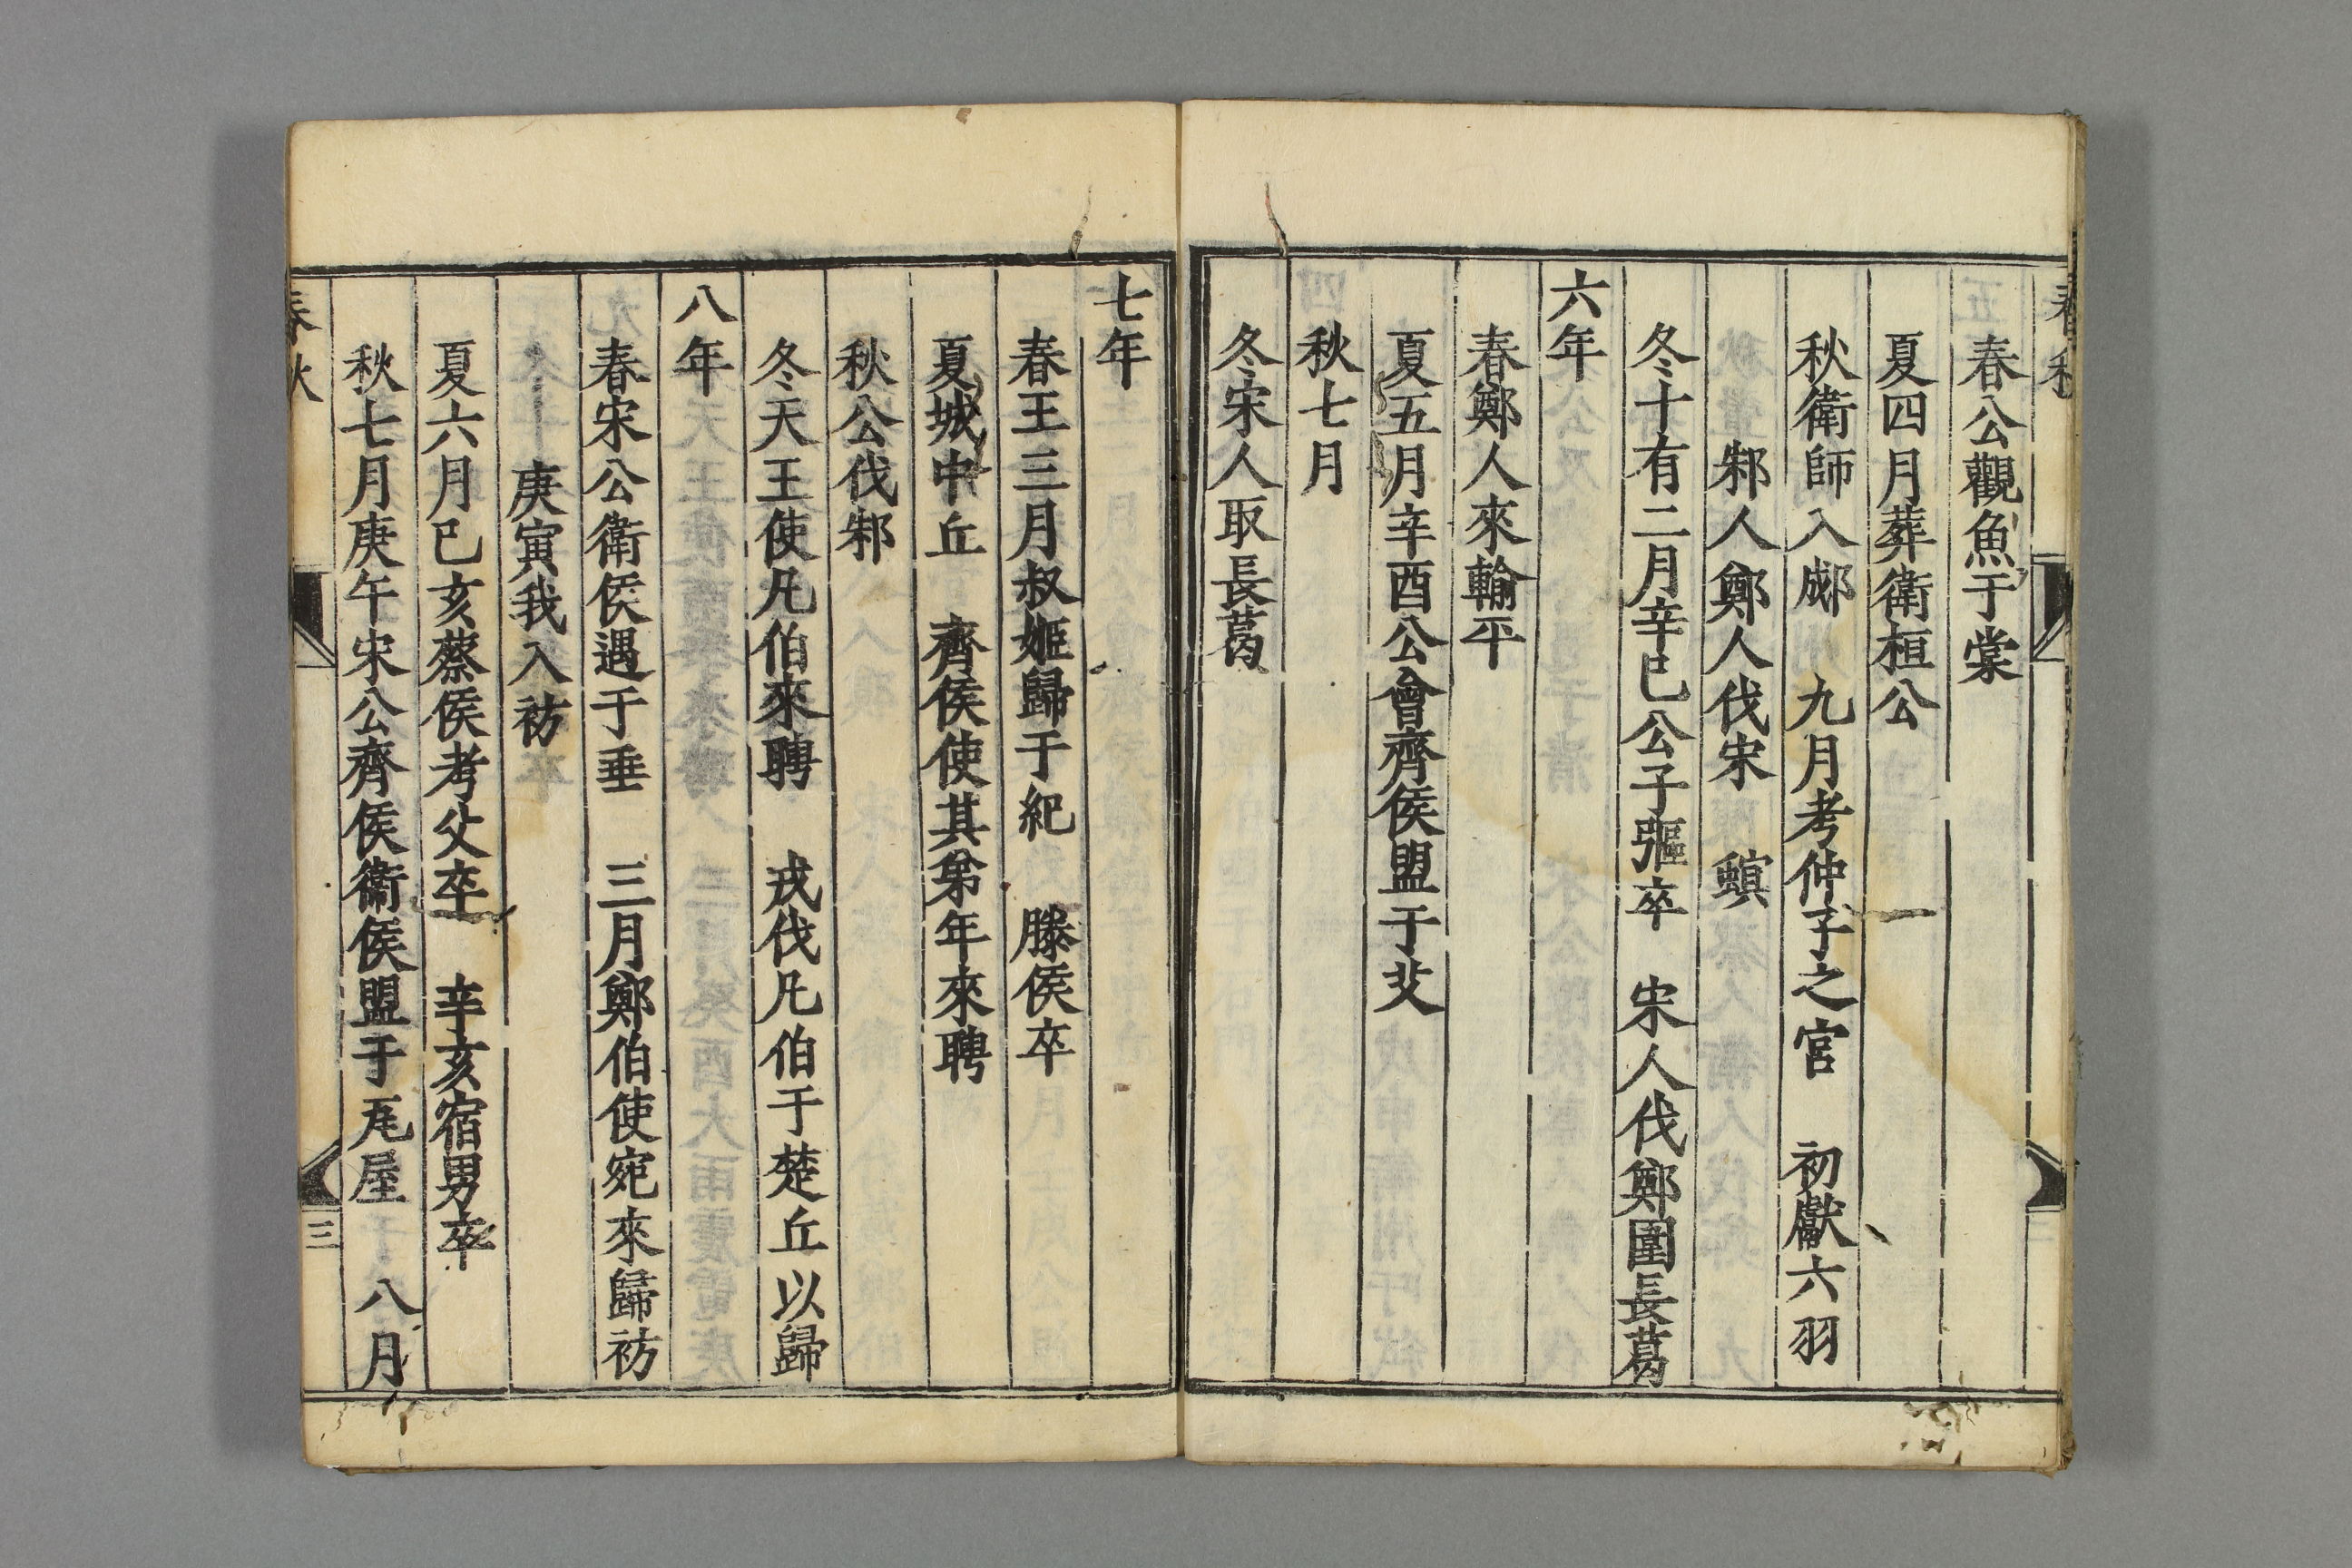 春秋
春公觀魚于棠
夏四月葬衛桓公
秋衛師入郕　九月考仲子之宮　初獻六羽
邾人鄭人伐宋　螟
冬十有二月辛巳公子彄卒　宋人伐鄭圍長葛
六年
春鄭人來輸平
夏五月辛酉公會齊侯盟于艾
秋七月
冬宋人取長葛
七年
春王三月叔姬歸于紀　滕侯卒
夏城中丘　齊侯使其弟年來聘
秋公伐邾
冬天王使凡伯來聘　戎伐凡伯于楚丘以歸
八年
春宋公衛侯遇于垂　三月鄭伯使宛來歸祊
庚寅我入祊
夏六月己亥蔡侯考父卒　辛亥宿男卒
秋七月庚午宋公齊侯衛侯盟于瓦屋　八月
春秋
三